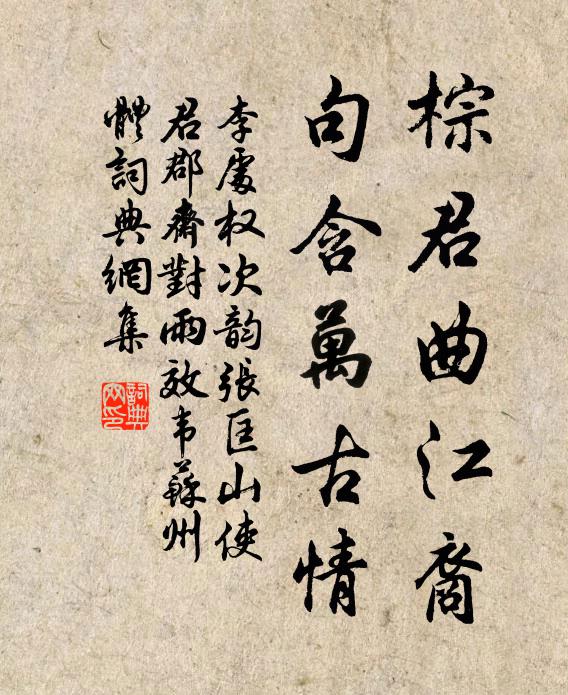 棕君曲江裔
句含萬古情
李處权次韵張匡山使
君郡齋對雨效韦蘇州
體詞典網集
詞典網印